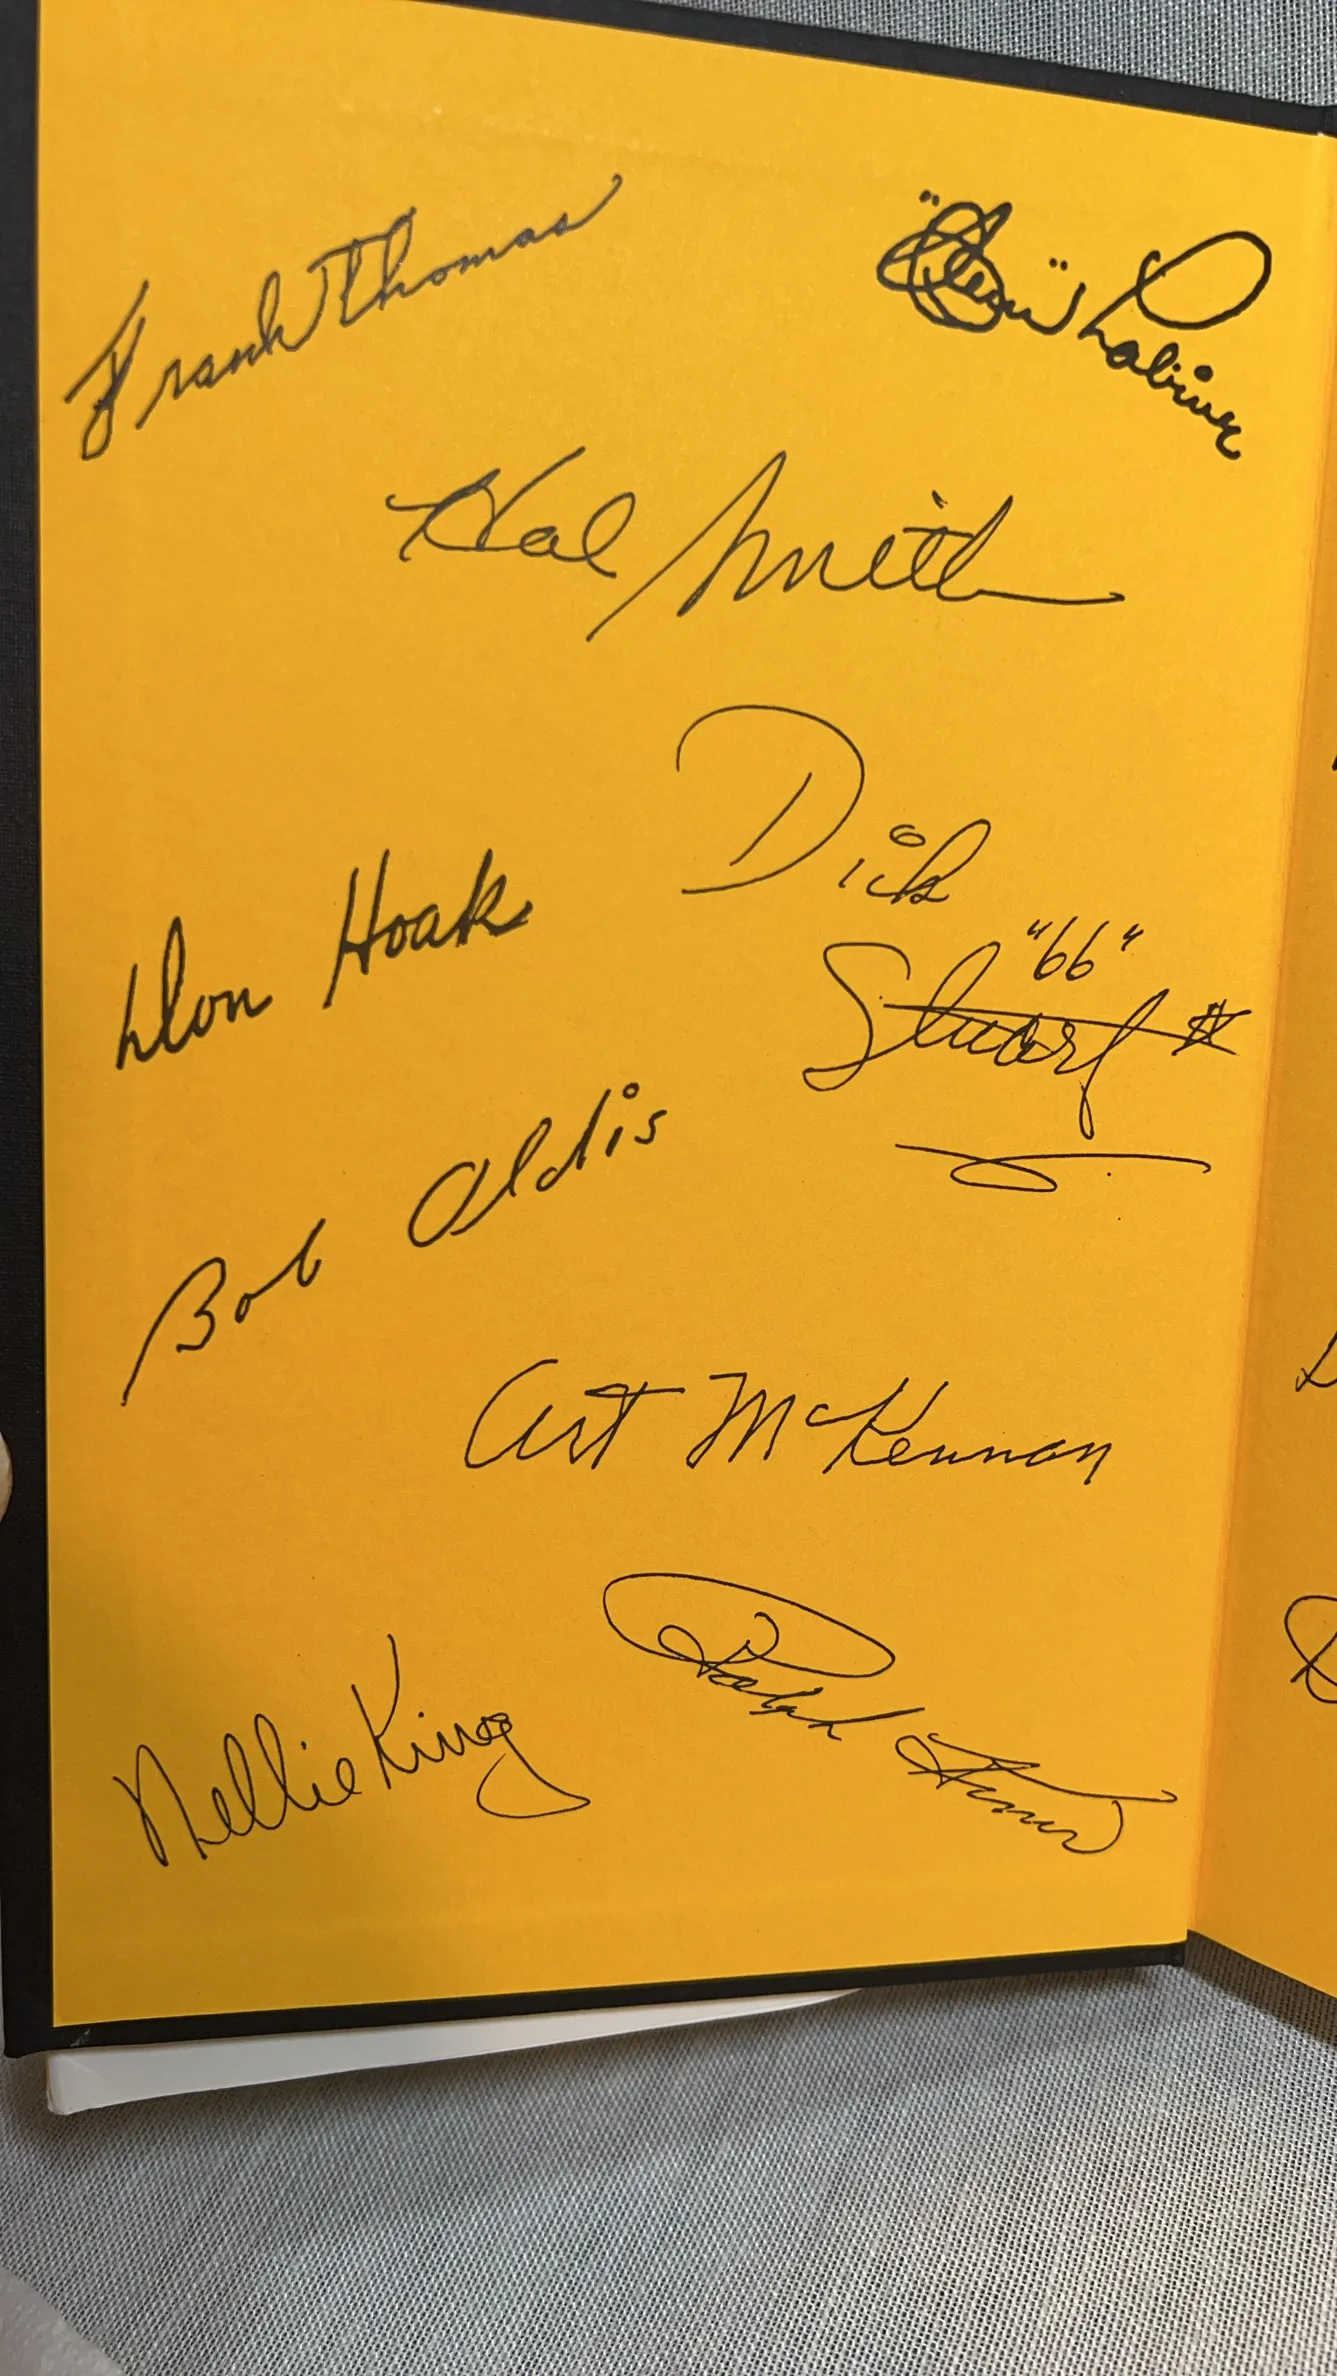 Frank Thomas
"Clem" Labine
Hal Smith
Dick
"66"
Stuart
Don Hoak
Bob Oldis
Art McKennan
Ralph Kiner
Nellie King